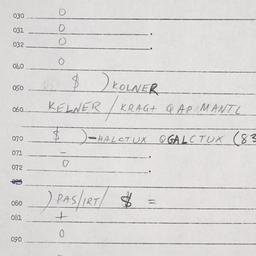 030 0
031 0
032 0
040 0
050 $ ) KOLNER
060 KELNER / KRAGT QAP MANTL
070 $ )-HALCTUX QGALCTUX (83
071 -
072 0
080 ) PAS/IRT/ $ =
081 +
090 0